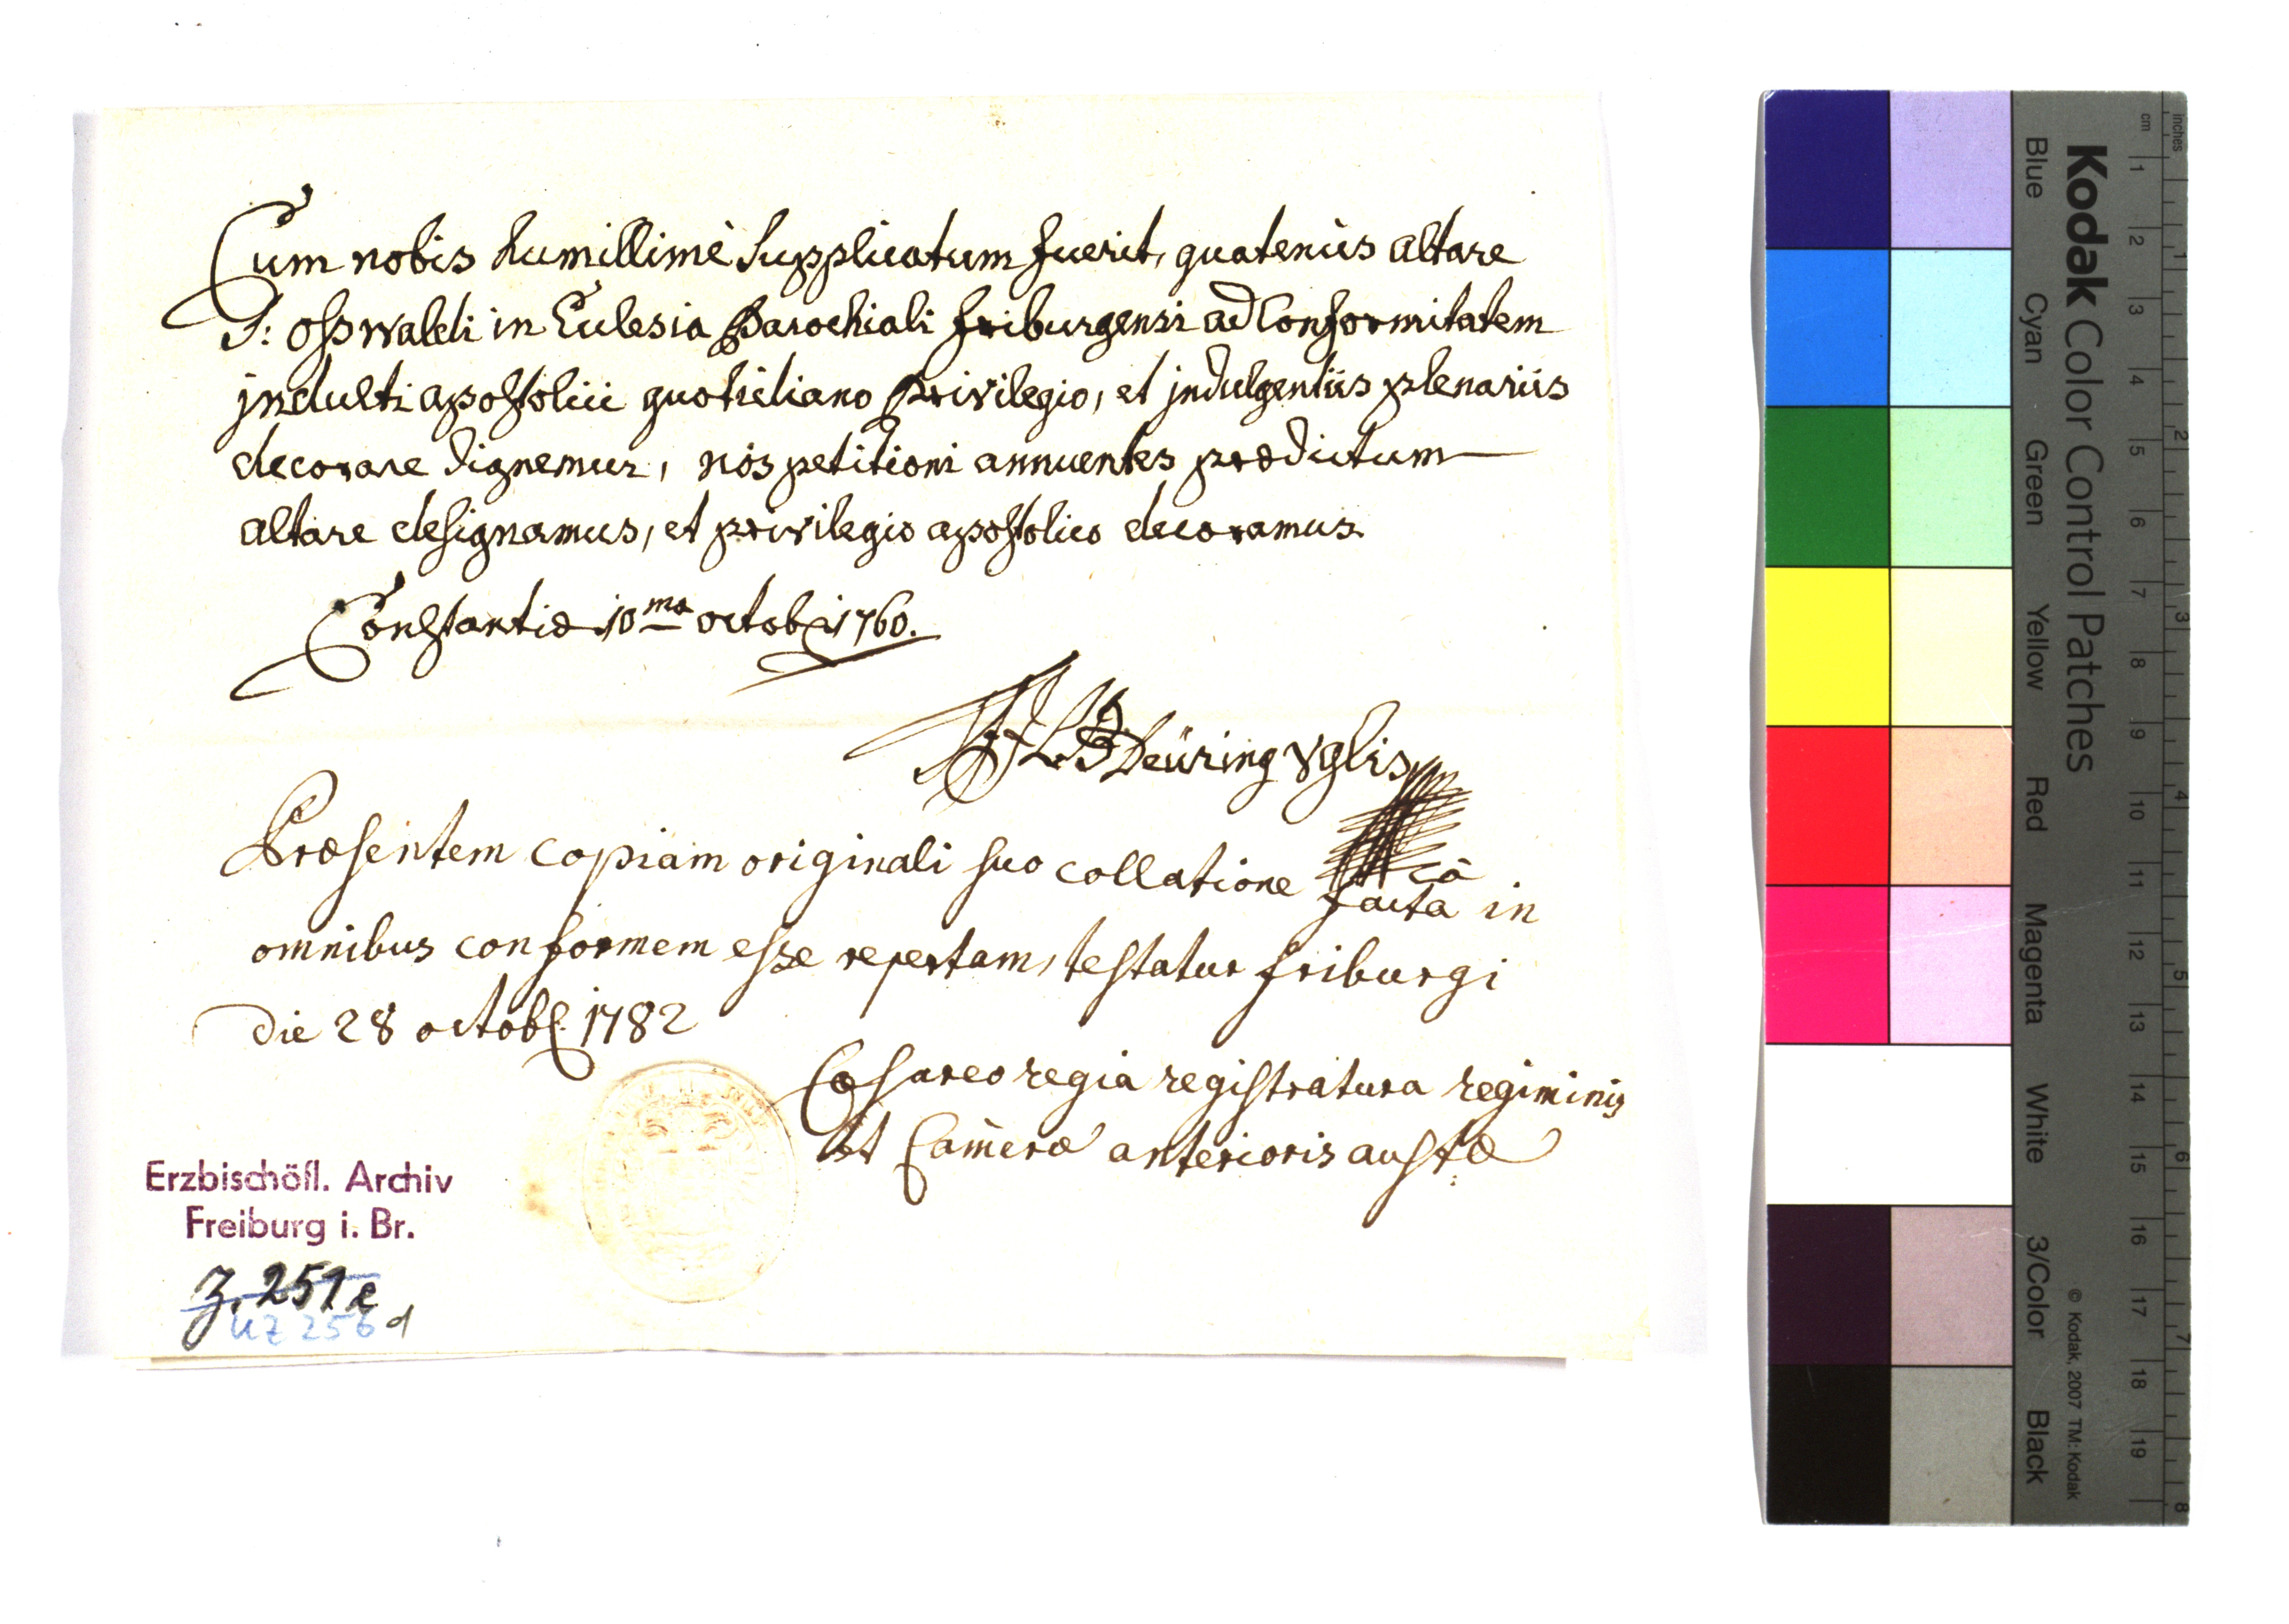 Cum nobis humillimè Supplicatum fuerit, quatenùs altare
S: osswaldi in Ecclesia Parochiali friburgensi ad Conformitatem
jndulti apostolici quotidiano privilegio, et jndulgentiis plenariis
decorare dignemur, nos petitioni annuentes prædictum
altare designamus, et privilegio apostolico decoramus.
Constantiæ 10ma octob 1760.
Deüring Vglis
Præsentem copiam originali suo collatione
facta in
omnibus conformem esse repertam, testatur friburgi
die 28 octob: 1782
Cæsareo regia registratura regiminis
et Cameræ anterioris austæ
Erzbischöfl. Archiv
Freiburg i. Br.
Z. 251e
UZ 256 d
Kodak Color Control Patches
Blue Cyan Green Yellow Red Magenta White 3/Color Black
© Kodak, 2007 TM: Kodak
cm 1 2 3 4 5 6 7 8 9 10 11 12 13 14 15 16 17 18 19
inches 1 2 3 4 5 6 7 8